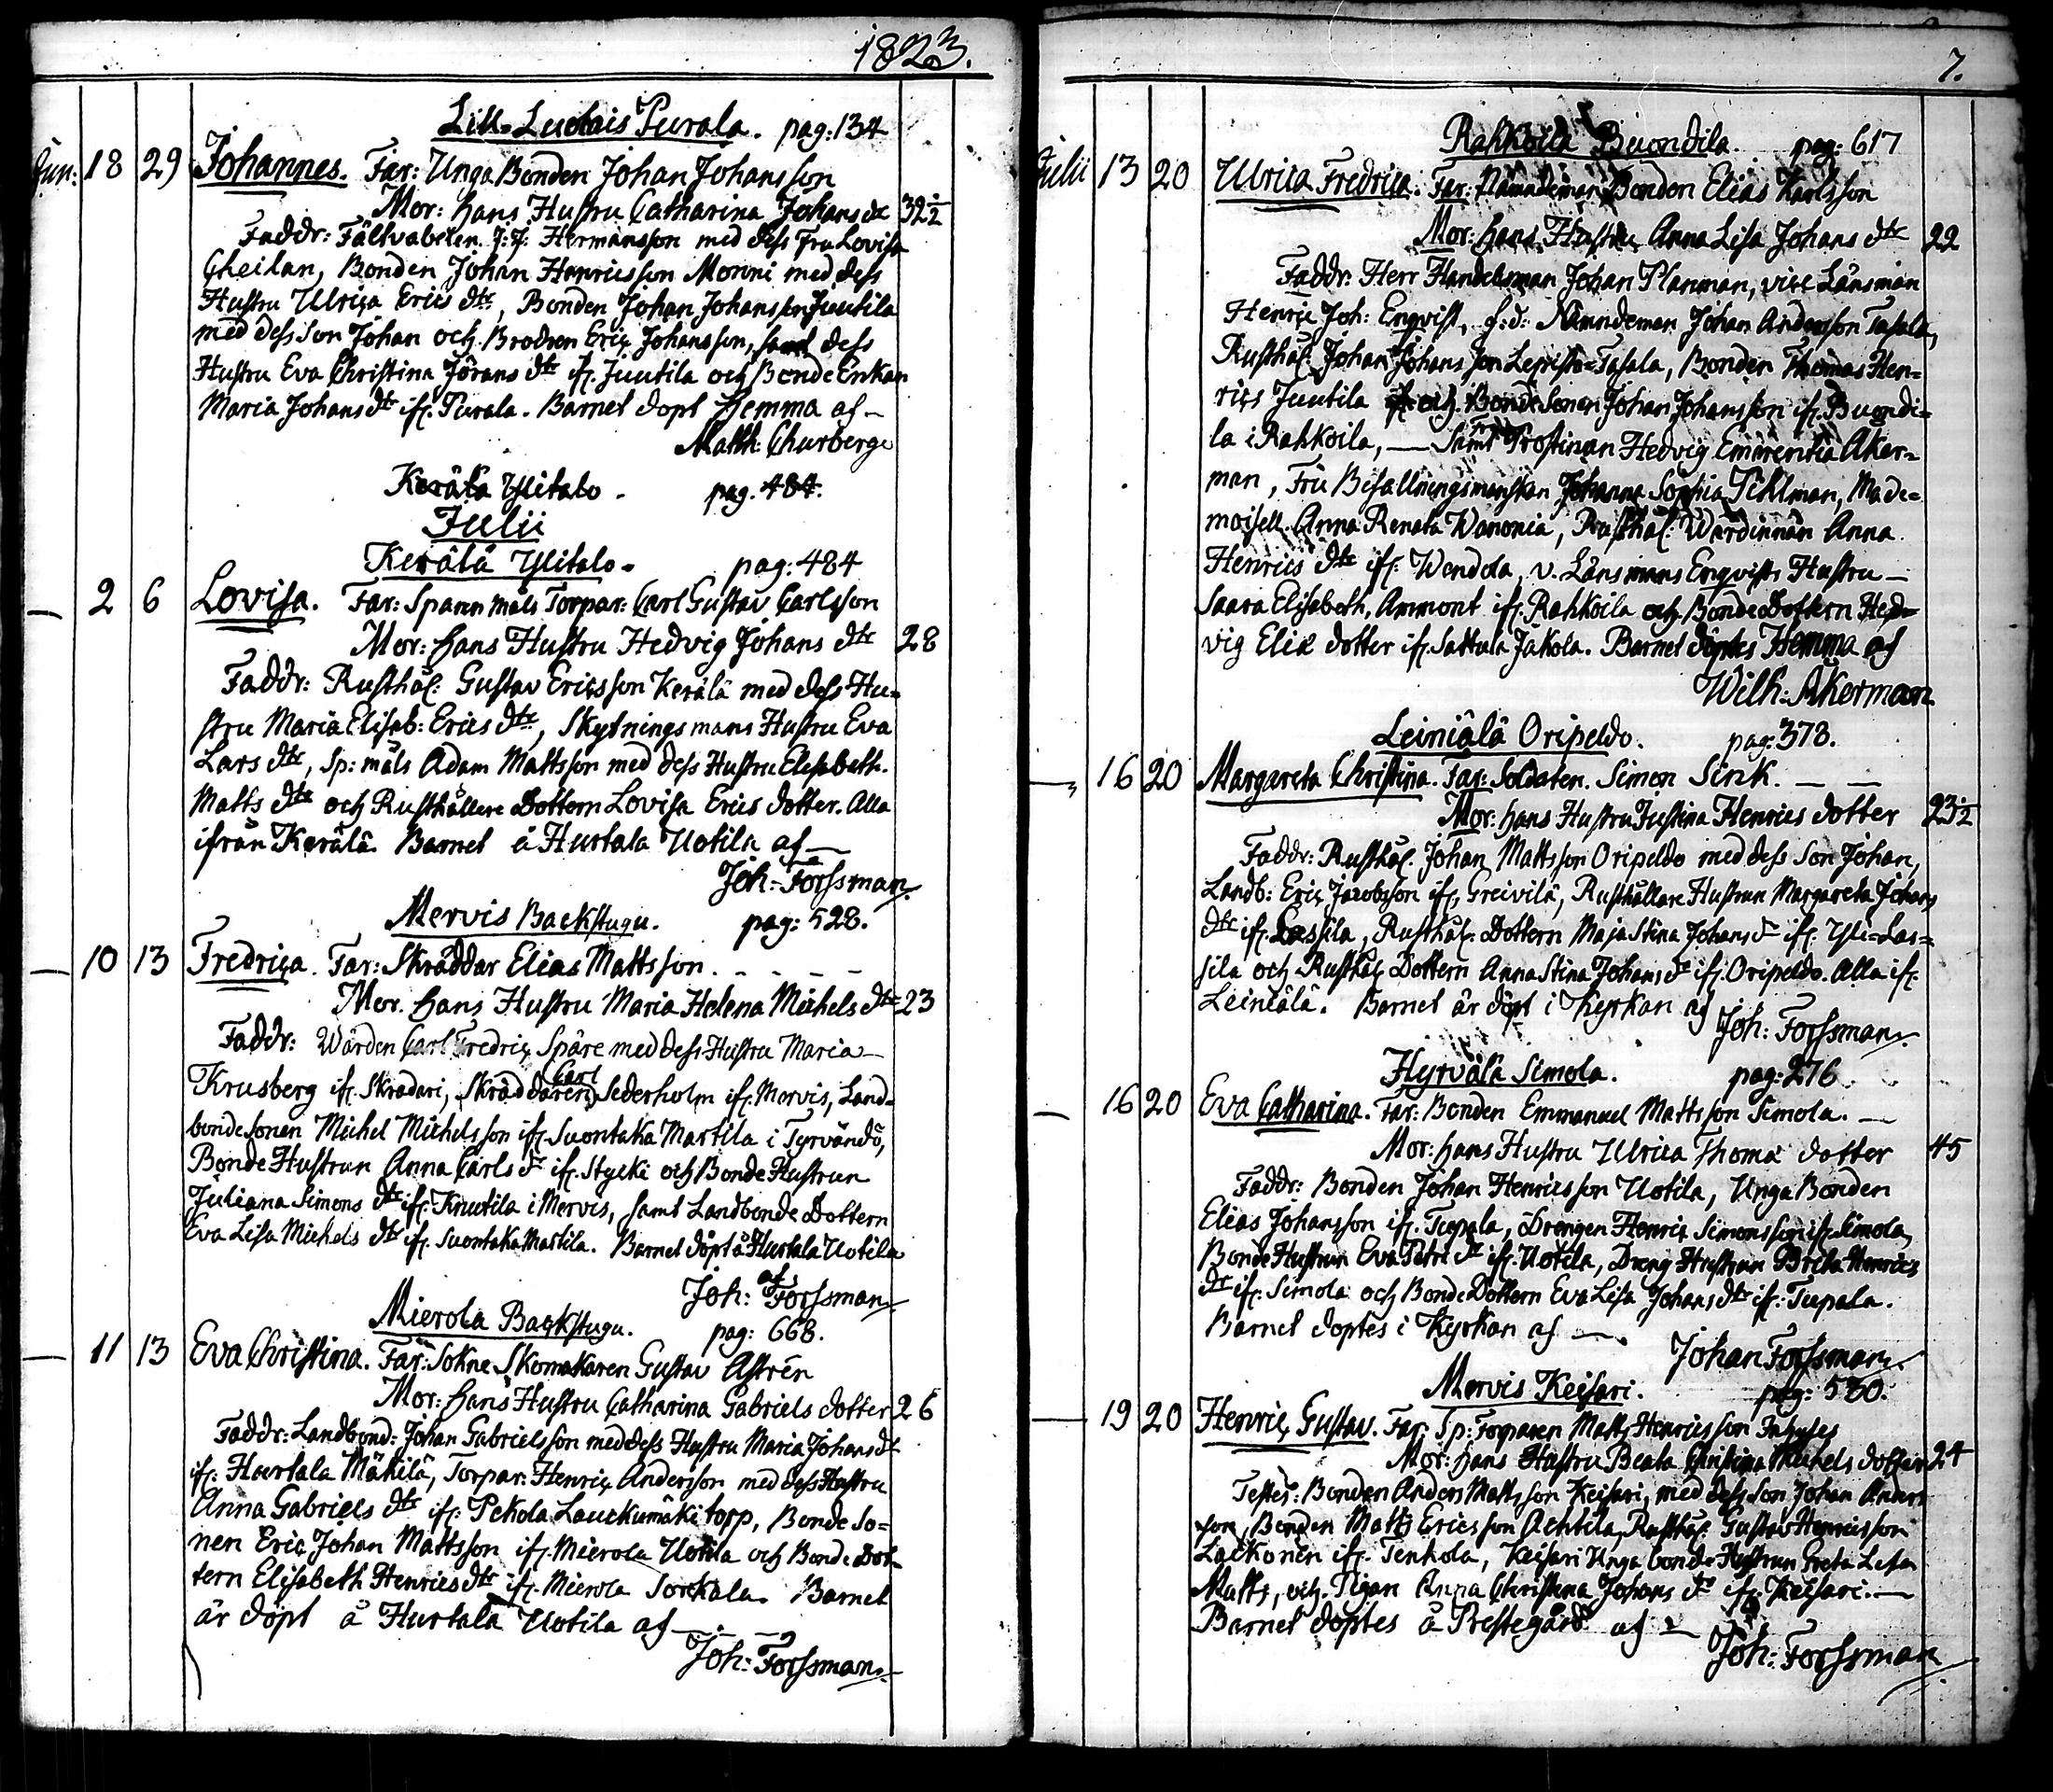 1823.
Lill-Ludais Purala. pag: 134
Jun: 18 29 Johannes. Far: Unga Bonden Johan Johansson
Mor: hans Hustru Catharina Johans dr 32½
Faddr: Fältvabelen J:J: Hermansson med dess Fru Lovisa
Cheilan, Bonden Johan Henricsson Monni med dess
Hustru Ulrica Erics dtr, Bonden Johan Johansson Juutila
med dess Son Johan och Brodren Eric Johansson, samt dess
Hustru Eva Christina Jörans dtr if. Juutila och Bonde Enkan
Maria Johans dr if. Purala. Barnet döpt hemma af —
Math: Churberg
Kerälä Ylitalo. pag. 484.
Julii
Kerälä Ylitalo. pag: 484
— 2 6 Lovisa. Far: Spanmåls Torpar: Carl Gustav Carlsson
Mor: hans Hustru Hedvig Johans dtr 28
Faddr: Rusthål: Gustav Ericsson Kerälä med dess Hu=
stru Maria Elisab: Erics dtr, Skytningsmans Hustru Eva
Lars dtr, Sp: måls Adam Mattsson med dess Hustru Elisabeth.
Matts dtr och Rusthållare Dottern Lovisa Erics dotter. Alla
ifrån Kerälä. Barnet å Hurtala Uotila af —
Joh: Forssman
Mervis Backstugu. pag: 528.
— 10 13 Fredrica. Far: Skräddar Elias Mattsson. - - - -
Mor. hans Hustru Maria Helena Michels dtr 23
Faddr: Wärden Carl Fredric Späre med dess Hustru Maria —
Carl
Krusberg if. Skrädari, Skräddaren Sederholm if. Mervis, Land-
bonde Sonen Michel Michelsson if. Suontaka Martila i Tyrvändö,
Bonde Hustrun Anna Carls dr if. Stycki och Bonde Hustrun
Juliana Simons dtr if. Knutila i Mervis, samt Landbonde Dottern
Eva Lisa Michels dtr if. Suontaka Martila. Barnet döpt å Hurtala Uotila
af
Joh: Forssman
Mierola Backstugu. pag: 668.
— 11 13 Eva Christina. Far: Sokne Skomakaren Gustav Astrén
Mor: hans Hustru Catharina Gabriels dotter 26
Faddr: Landbond: Johan Gabrielsson med dess Hustru Maria Johans dr
if. Hurtala Mäkilä, Torpar: Henric Andersson med dess Hustru
Anna Gabriels dtr if. Pekola Lauckumäki torp, Bonde So=
nen Eric Johan Mattsson if. Mierola Uotila och Bonde Dot-
tern Elisabeth Henrics dtr if. Mierola Sorkala. Barnet
är döpt å Hurtala Uotila af —
Joh: Forssman.
7.
Rahkoila Buondila. pag: 617
Julii 13 20 Ulrica Fredrica. Far: Nämndeman Bonden Elias Karlsson
Mor: hans Hustru Anna Lisa Johans dtr 22
Faddr: Herr Handelsman Johan Planman, vice Länsman
Henric Joh: Enqvist, f:d: Nämndeman Johan Andersson Tasala,
Rusthål. Johan Johansson Lepistö=Tasala, Bonden Thomas Hen=
rics Juutila och Bonde Sonen Johan Johansson if. Buondi=
la i Rahkoila, — Samt Prostinan Hedvig Emerentia Åker=
man, Fru Befallningsmanskan Johanna Sophia Pihlman, Made=
moisell. Anna Renata Wanonia, Rusthål. Wärdinnan Anna
Henrics dtr if. Wendola, v. Länsmans Enqvists Hustru —
Saara Elisabeth, Ammont if. Rahkoila och Bonde Dottern Hed=
vig Eliæ dotter if. Sattula Jakola. Barnet döptes Hemma af
Wilh: Åkerman
Leiniälä Oripeldo. pag: 373.
— 16 20 Margareta Christina. Far: Soldaten. Simon Sink. — —
Mor: hans Hustru Justina Henrics dotter 23½
Faddr: Rusthål. Johan Mattsson Oripeldo med dess Son Johan,
Landb: Eric Jacobsson if. Greivilä, Rusthållare Hustrun Margareta Johans
dtr if. Lassila, Rusthål. Dottern Maja Stina Johans dr if. Yli=Las=
sila och Rusthål Dottern Anna Stina Johans dr if. Oripeldo. Alla if.
Leiniälä. Barnet är döpt i Kyrkan af
Joh: Forssman
Hyrvälä Simola. pag: 276
— 16 20 Eva Catharina. Far: Bonden Emmanuel Mattsson Simola. —
Mor: hans Hustru Ulrica Thomæ dotter 45
Faddr: Bonden Johan Henricsson Uotila, Unga Bonden
Elias Johansson if. Tupala, Drengen Henric Simonsson if. Simola,
Bonde Hustrun Eva Petri dr if. Uotila, Dreng Hustrun Brita Henrics
dr if. Simola och Bonde Dottern Eva Lisa Johans dtr if. Tupala.
Barnet döptes i Kyrkan af —
Johan Forssman
Mervis Keisari. pag: 530.
— 19 20 Henric Gustav. Far: Sp: Torparen Matts Henricsson
Mor: hans Hustru Beata Christina Michels dotter 24
Testes: Bonden Anders Mattsson Keisari, med dess Son Johan Anders
son, Bonden Matts Ericsson Achtila, Rusthål. Gustav Henricsson
Lackonen if. Tenhola, Keisari Unga bonde Hustrun Greta Lisa
Matts, och Pigan Anna Christina Johans dr if. Keisari. —
Barnet döptes å Prestegård af —
Joh: Forssman